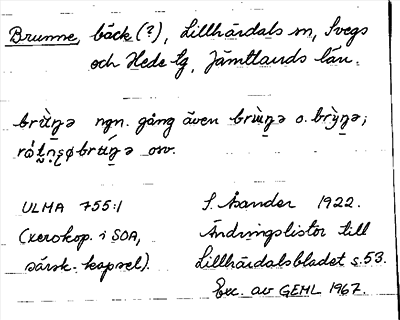 Brunne, bäck (?), Lillhärdals sn, Svegs
och Hede tg, Jämtlands län.
brùŋə ngn. gång även brùŋə o. brỳŋə;
osv.
ULMA 755:1 S. Asander 1922.
(xerokop. i SOA, Ändringslistor till
särsk. kapsel). Lillhärdalsbladet s. 53.
Exc. av GEHL 1967.